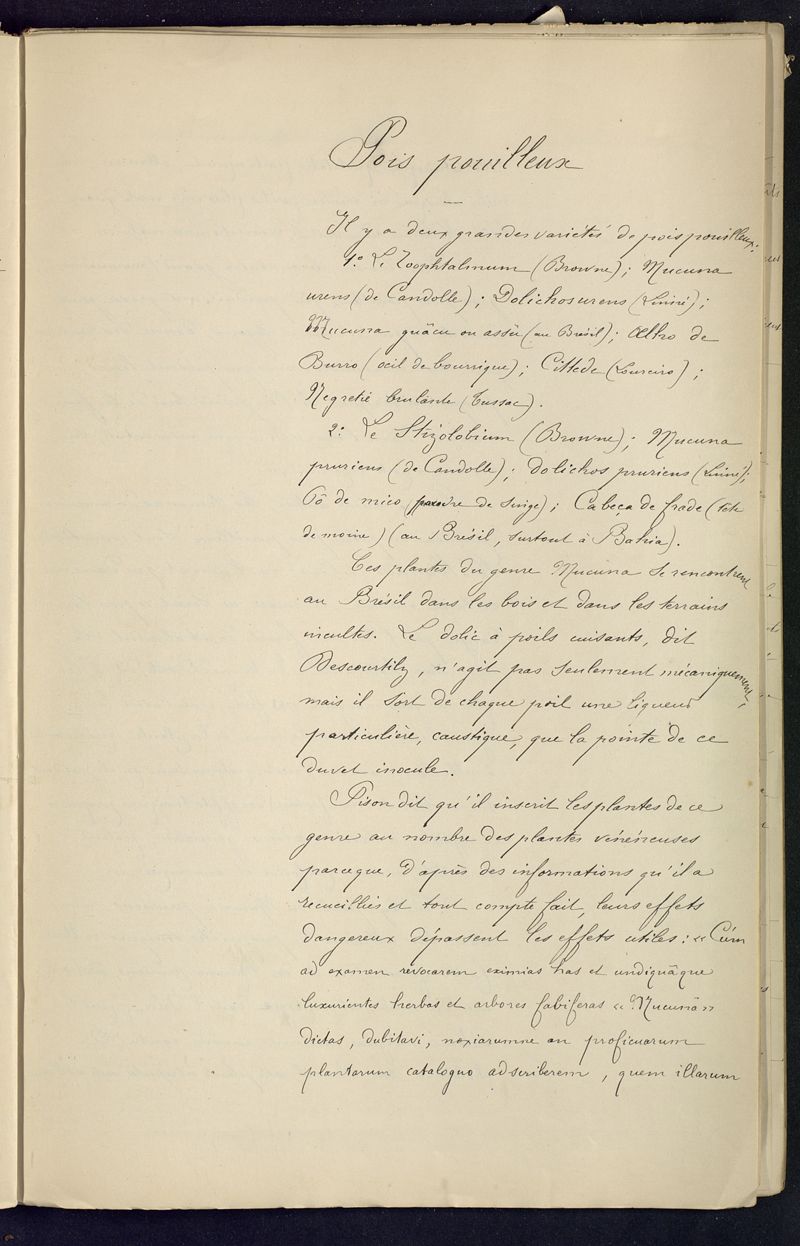 Pois pouilleux
Il y a deux grandes variétés de pois pouilleux:
1º Le Zoophtalmum (Browne); Mucuna
urens (de Candolle); Dolichos urens (Linné);
Mucuna guäcu ou assù (au Brésil); Olho de
Burro (oeil de bourrique); Cittede (Loureiro);
Negretié brulante (Tussac).
2º Le Stizolobium (Browne); Mucuna
pruriens (de Candolle); dolichos pruriens (Linné);
Pô de mico (poudre de Singe); Cabeca de frade (tête
de moine) (au Brésil, surtout à Bahia).
Ces plantes du genre Mucuna se rencontrent
au Brésil dans les bois et dans les terrains
incultes. Le dolic à poils cuisants, dit
Descourtilz, n'agit pas seulement mécaniquement,
mais il sort de chaque poil une liqueur
particulière, caustique, que la pointe de ce
duvet inocule.
Pison dit qu'il inscrit les plantes de ce
genre au nombre des plantes vénéneuses
parceque, d'après des informations qu'il a
recueillies et tout compte fait, leurs effets
dangereux dépassent les effets utiles: « Cúm
ad examen revocarem eximias has et undiquâque
luxurientes herbas et arbores fabiferas « Mucunä »
dictas, dubitavi, noxiarumne an proficuarum
plantarum catalogno adscriberem, quem illarum